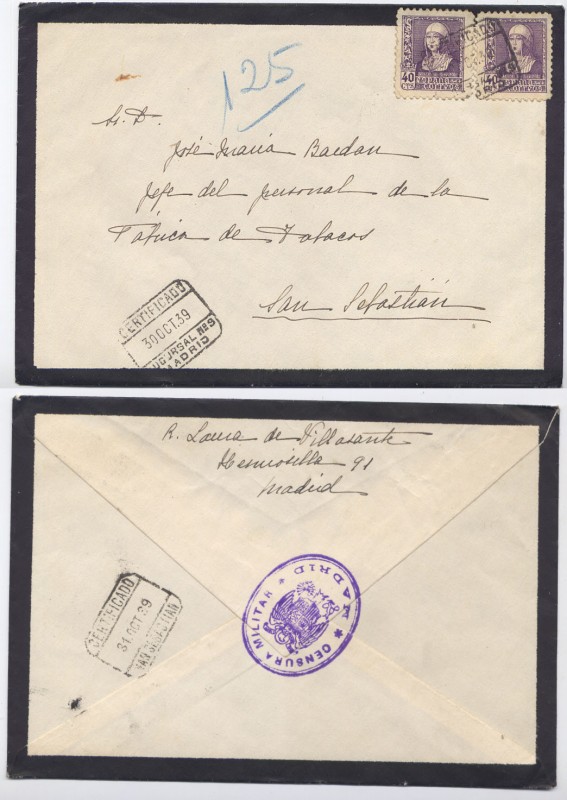 125
40
ESPAÑA
CORREOS
40
ESPAÑA
CORREOS
Sr. D.
José María Baedan
Jefe del personal de la
Fábrica de Tabacos
San Sebastián
CERTIFICADO
30 OCT.39
SUCURSAL Nº 9
MADRID
R. Lama de Villasante
Hermosilla 91
Madrid
CERTIFICADO
31 OCT 39
SAN SEBASTIAN
★ CENSURA MILITAR ★
MADRID